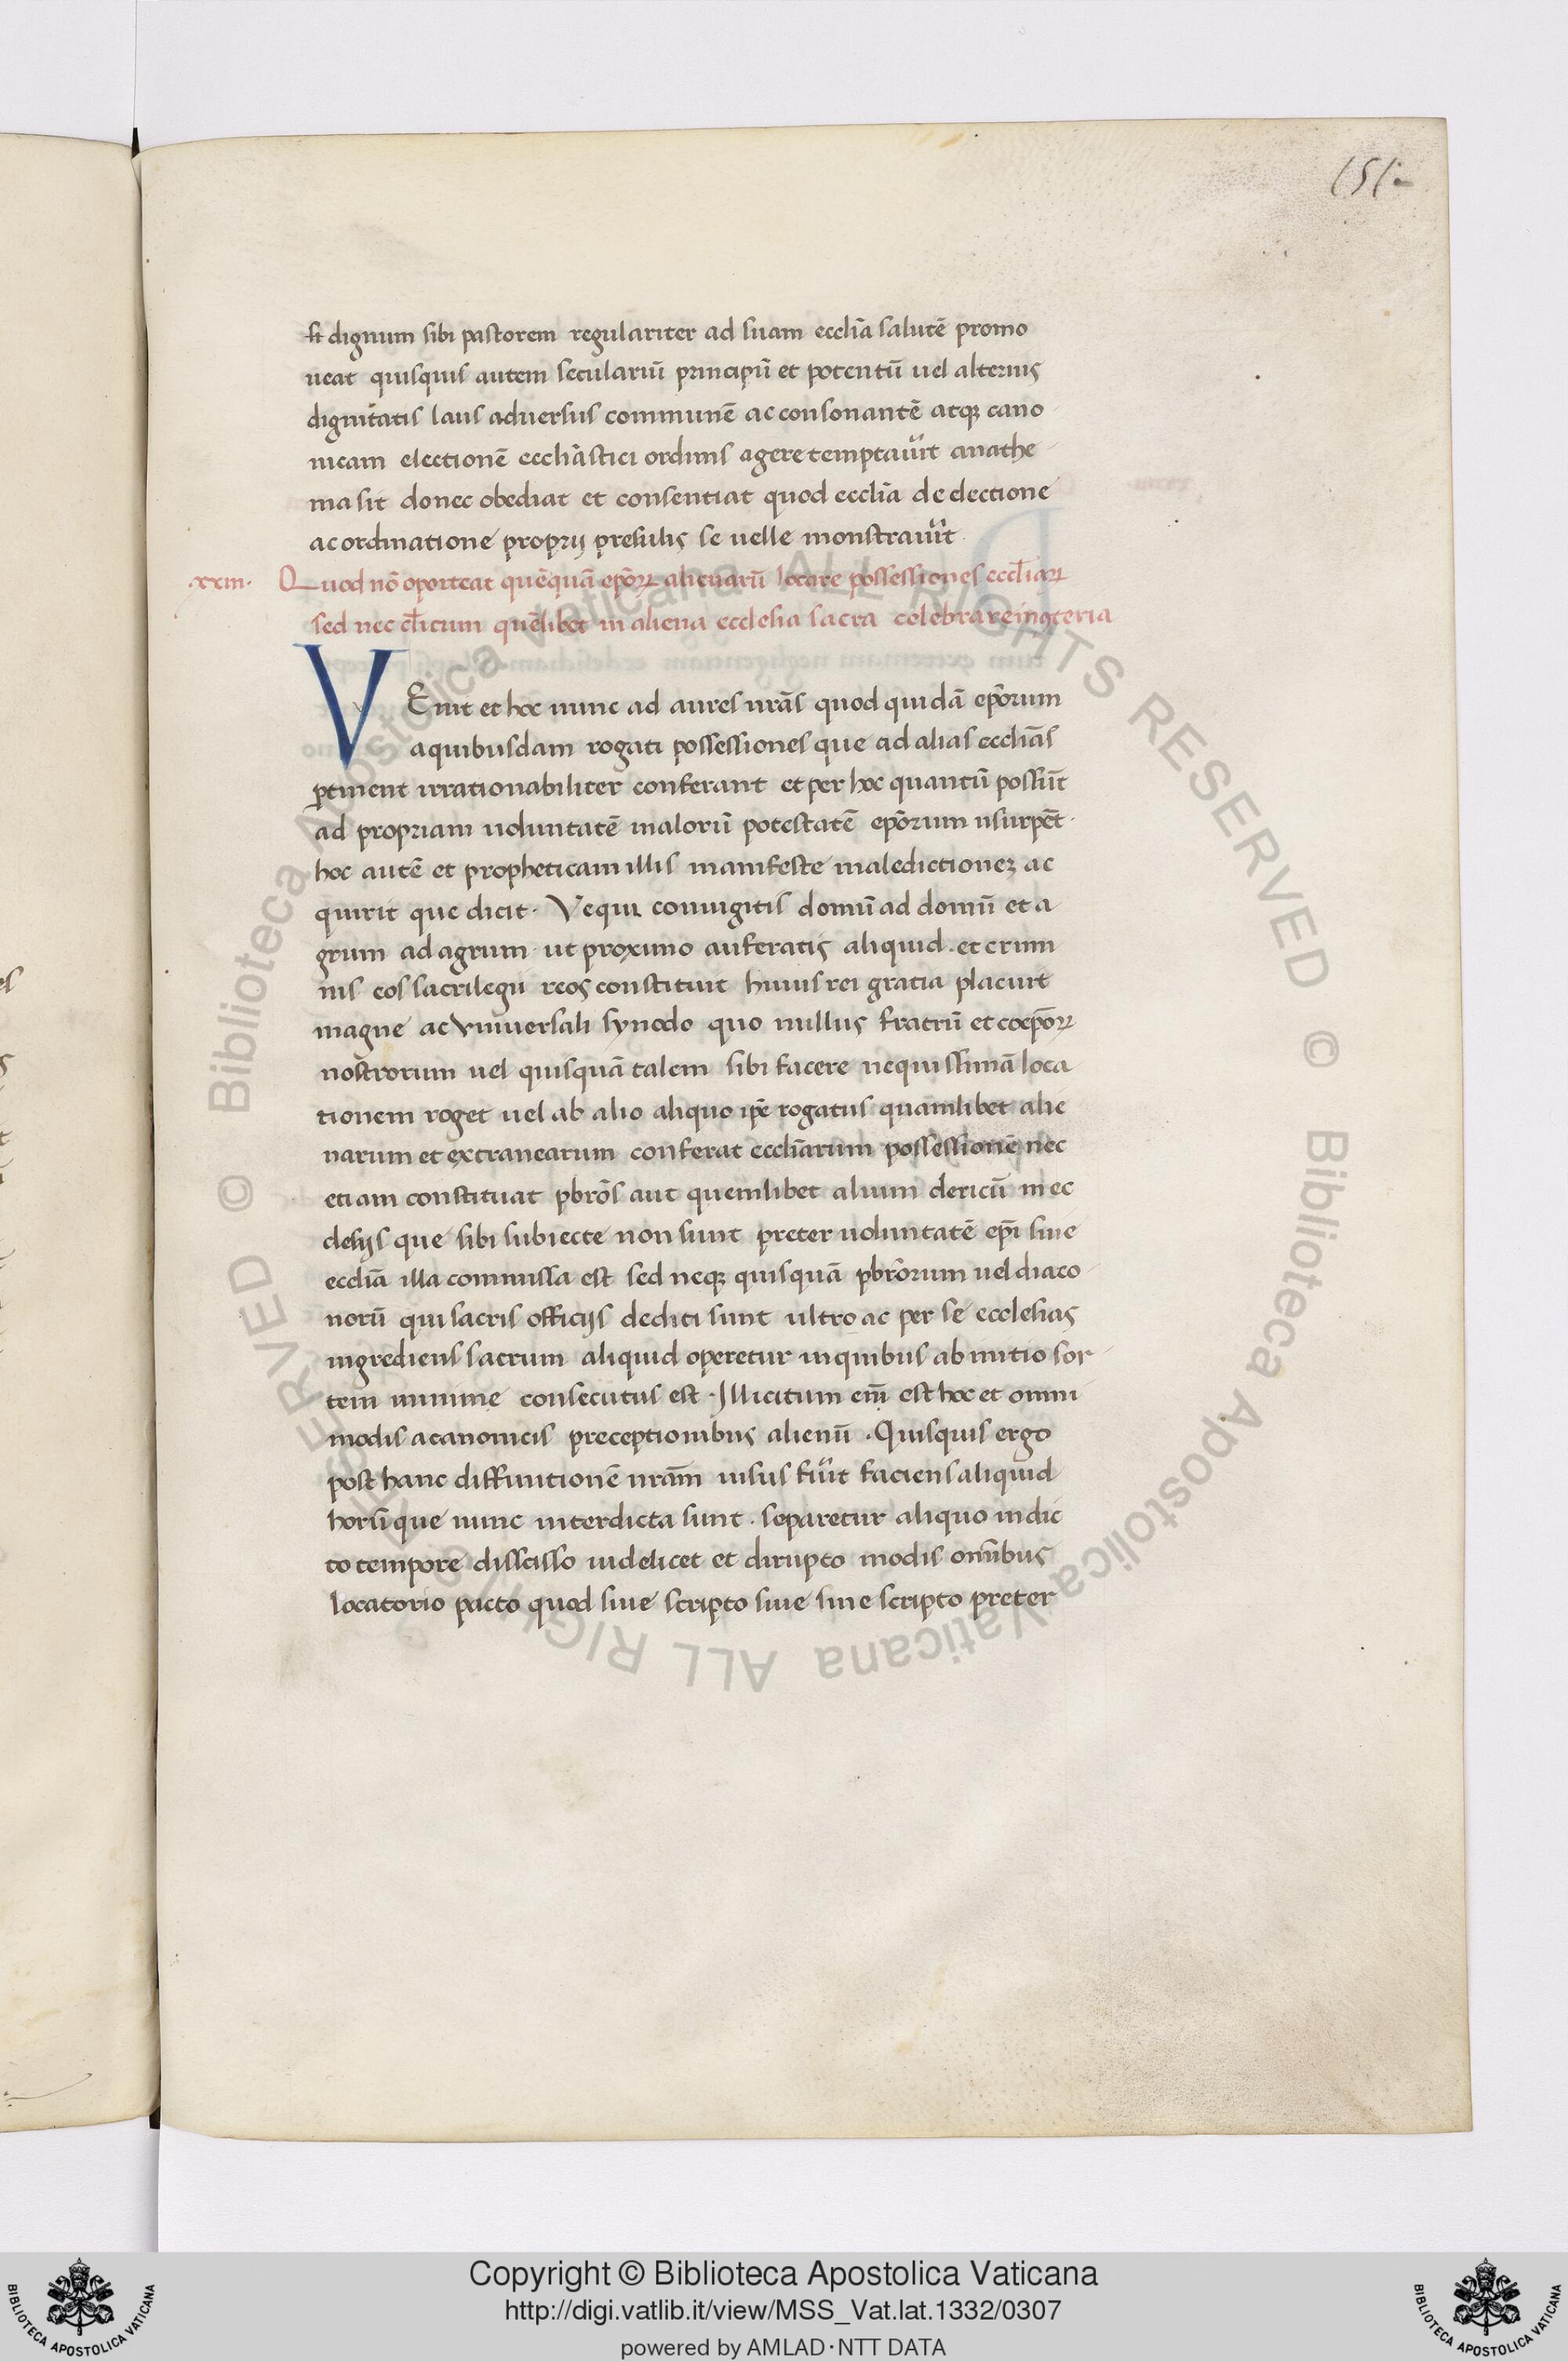 151
st dignum sibi pastorem regulariter ad suam ecclīa salutē promo
ueat quisquis autem seculariū principū et potentū uel alterius
dignitatis laus aduersus communē ac consonantē atqꝫ cano
nicam electionē ecclīastici ordinis agere temptaūit anathe
ma sit donec obediat et consentiat quod ecclīa de electione
ac ordinatione proprij presulis se uelle monstraūit
.xxiii. Quod nō oporteat quēquā epōꝝ alienarū locare possessiones eccl̄iaꝝ
sed nec cl̄icum quēlibet in aliena ecclesia sacra celebrare misteria
VEnit et hoc nunc ad aures nr̄as quod quidā epōrum
a quibusdam rogati possessiones que ad alias ecclīas
ꝑtinent irrationabiliter conferant et per hoc quantū possūt
ad propriam uoluntatē malorū potestatē epōrum usurpēt.
hoc autē et propheticam illis manifeste maledictioneꝫ ac
quirit que dicit. Ve qui coniugitis domū ad domū et a
grum ad agrum ut proximo auferatis aliquid. et crimi
nis eos sacrilegii reos constituit huius rei gratia placuit
magne ac vniuersali synodo quo nullus fratrū et coepōꝝ
nostrorum uel quisquā talem sibi facere nequissimā loca
tionem roget uel ab alio aliquo ip̄e rogatus quamlibet alie
narum et extranearum conferat ecclīarum possessionē nec
etiam constituat pbrōs aut quemlibet alium clericū in ec
clesijs que sibi subiecte non sunt preter uoluntatē ep̄i siue
ecclīa illa commissa est sed neqꝫ quisquā pbrōrum uel diaco
norū qui sacris officijs dediti sunt ultro ac per se ecclesias
ingrediens sacrum aliquid operetur in quibus ab initio sor
tem minime consecutus est. Illicitum em̄ est hoc et omni
modis a canonicis preceptionibus alienū. Quisquis ergo
post hanc diffinitionē nr̄am uisus fūit faciens aliquid
horū que nunc interdicta sunt. separetur aliquo indic
to tempore discisso uidelicet et dirupto modis omībus
locatorio pacto quod siue scripto siue sine scripto preter
Copyright © Biblioteca Apostolica Vaticana
http://digi.vatlib.it/view/MSS_Vat.lat.1332/0307
powered by AMLAD·NTT DATA
BIBLIOTECA APOSTOLICA VATICANA
BIBLIOTECA APOSTOLICA VATICANA
© Biblioteca Apostolica Vaticana ALL RIGHTS RESERVED © Biblioteca Apostolica Vaticana ALL RIGHTS RESERVED